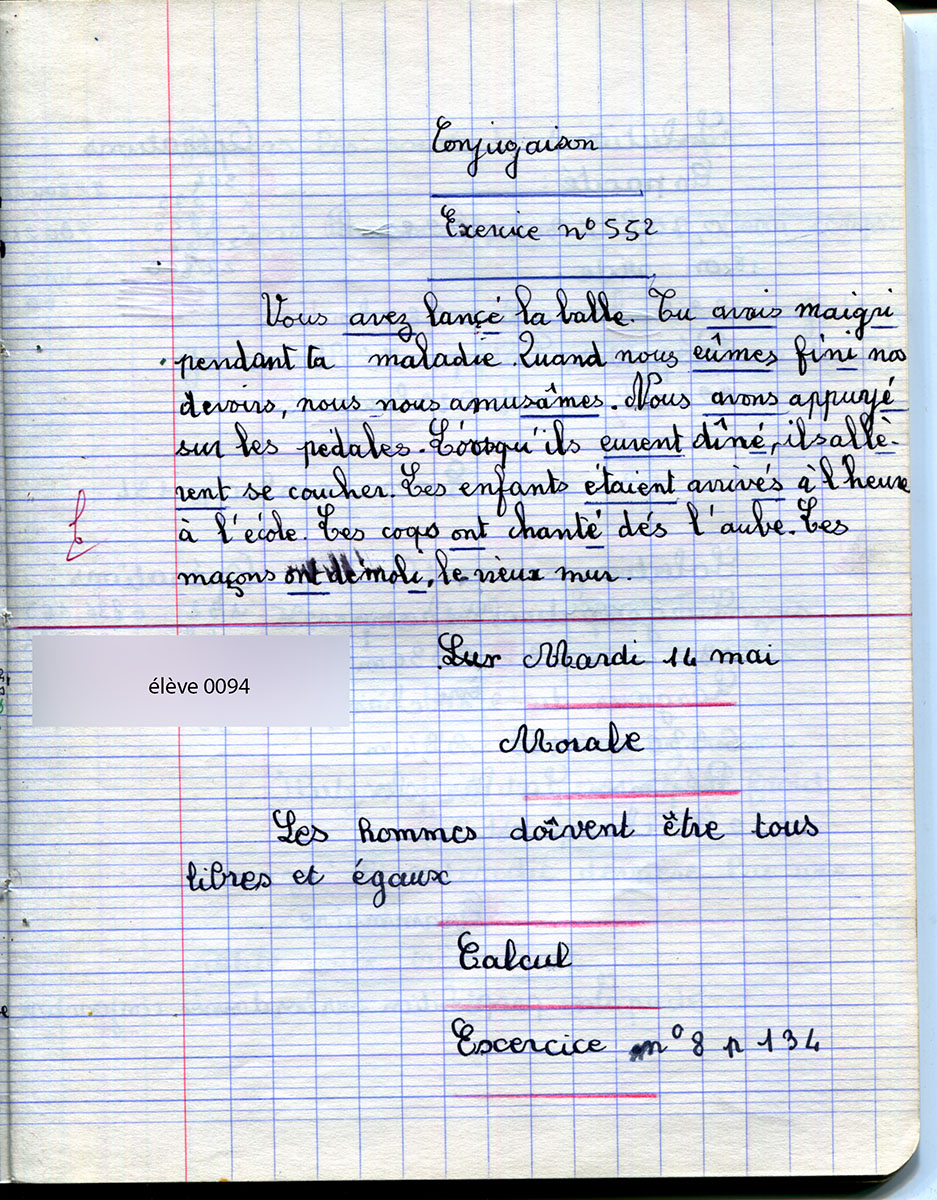 Conjugaison
Exercice n° 552
Vous avez lançé la balle. Tu avais maigri
pendant ta maladie. Quand nous eûmes fini nos
devoirs, nous nous amusâmes. Nous avons appuyé
sur les pédales. Lorsqu'ils eurent dîné, ils allè-
rent se coucher. Les enfants étaient arrivés à l'heure
à l'école. Les coqs ont chanté dés l'aube. Les
maçons ont démoli, le vieux mur.
Mardi 14 mai
élève 0094
Morale
Les hommes doîvent être tous
libres et égaux
Calcul
Excercice n° 8 p 134